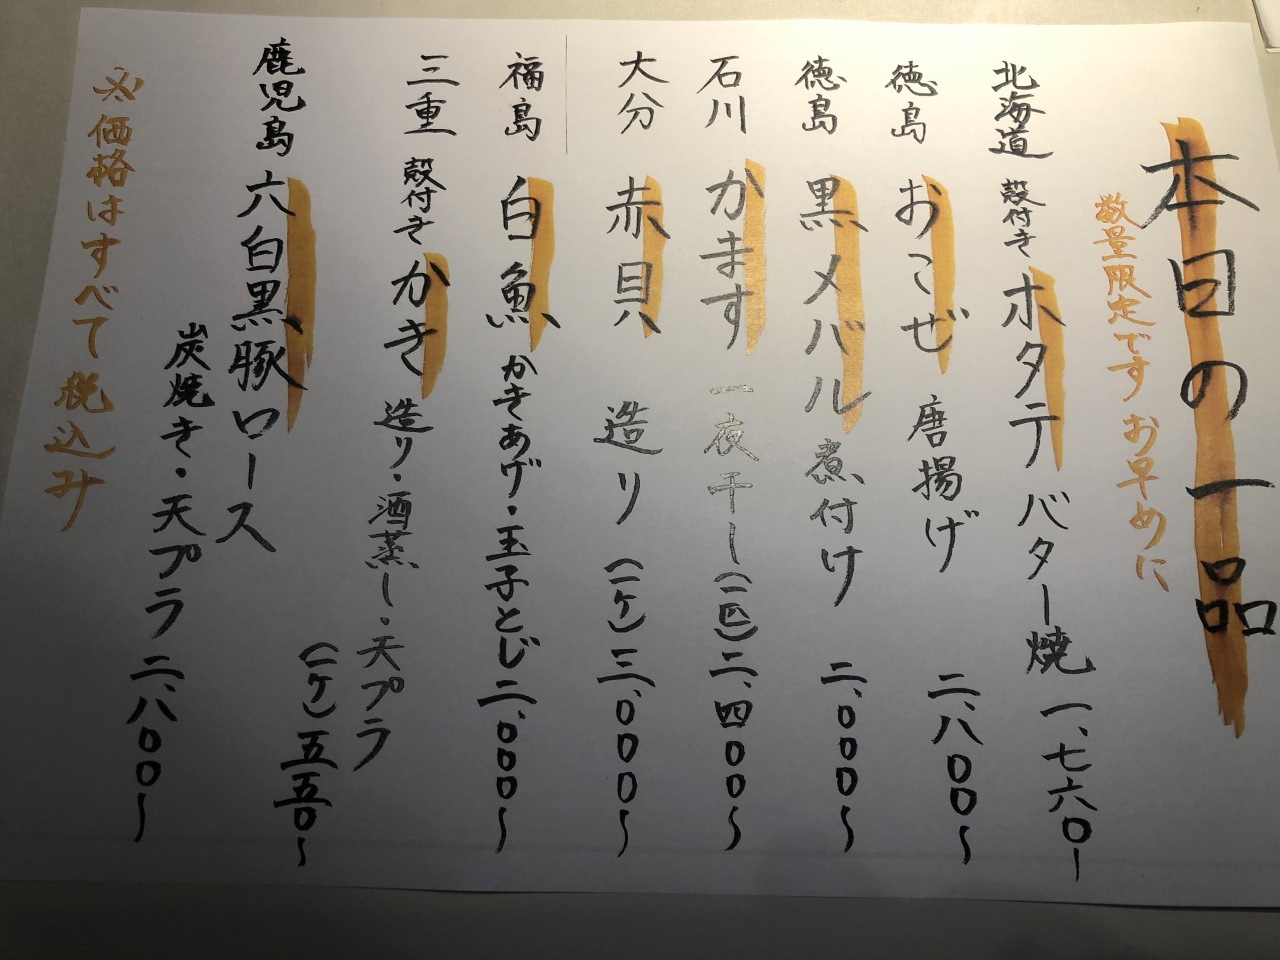 本日の一品
数量限定です お早めに
北海道 殻付き ホタテ バター焼 一、七六〇〜
徳島 おこぜ 唐揚げ 二、八〇〇〜
徳島 黒メバル 煮付け 二、〇〇〇〜
石川 かます 一夜干し(一匹)二、四〇〇〜
大分 赤貝 造り(一ケ)三、〇〇〇〜
福島 白魚 かきあげ・玉子とじ 二、〇〇〇〜
三重 殻付き かき 造り・酒蒸し・天プラ
(一ケ)五五〇〜
鹿児島 六白黒豚ロース
炭焼き・天プラ 二、八〇〇〜
※価格はすべて税込み